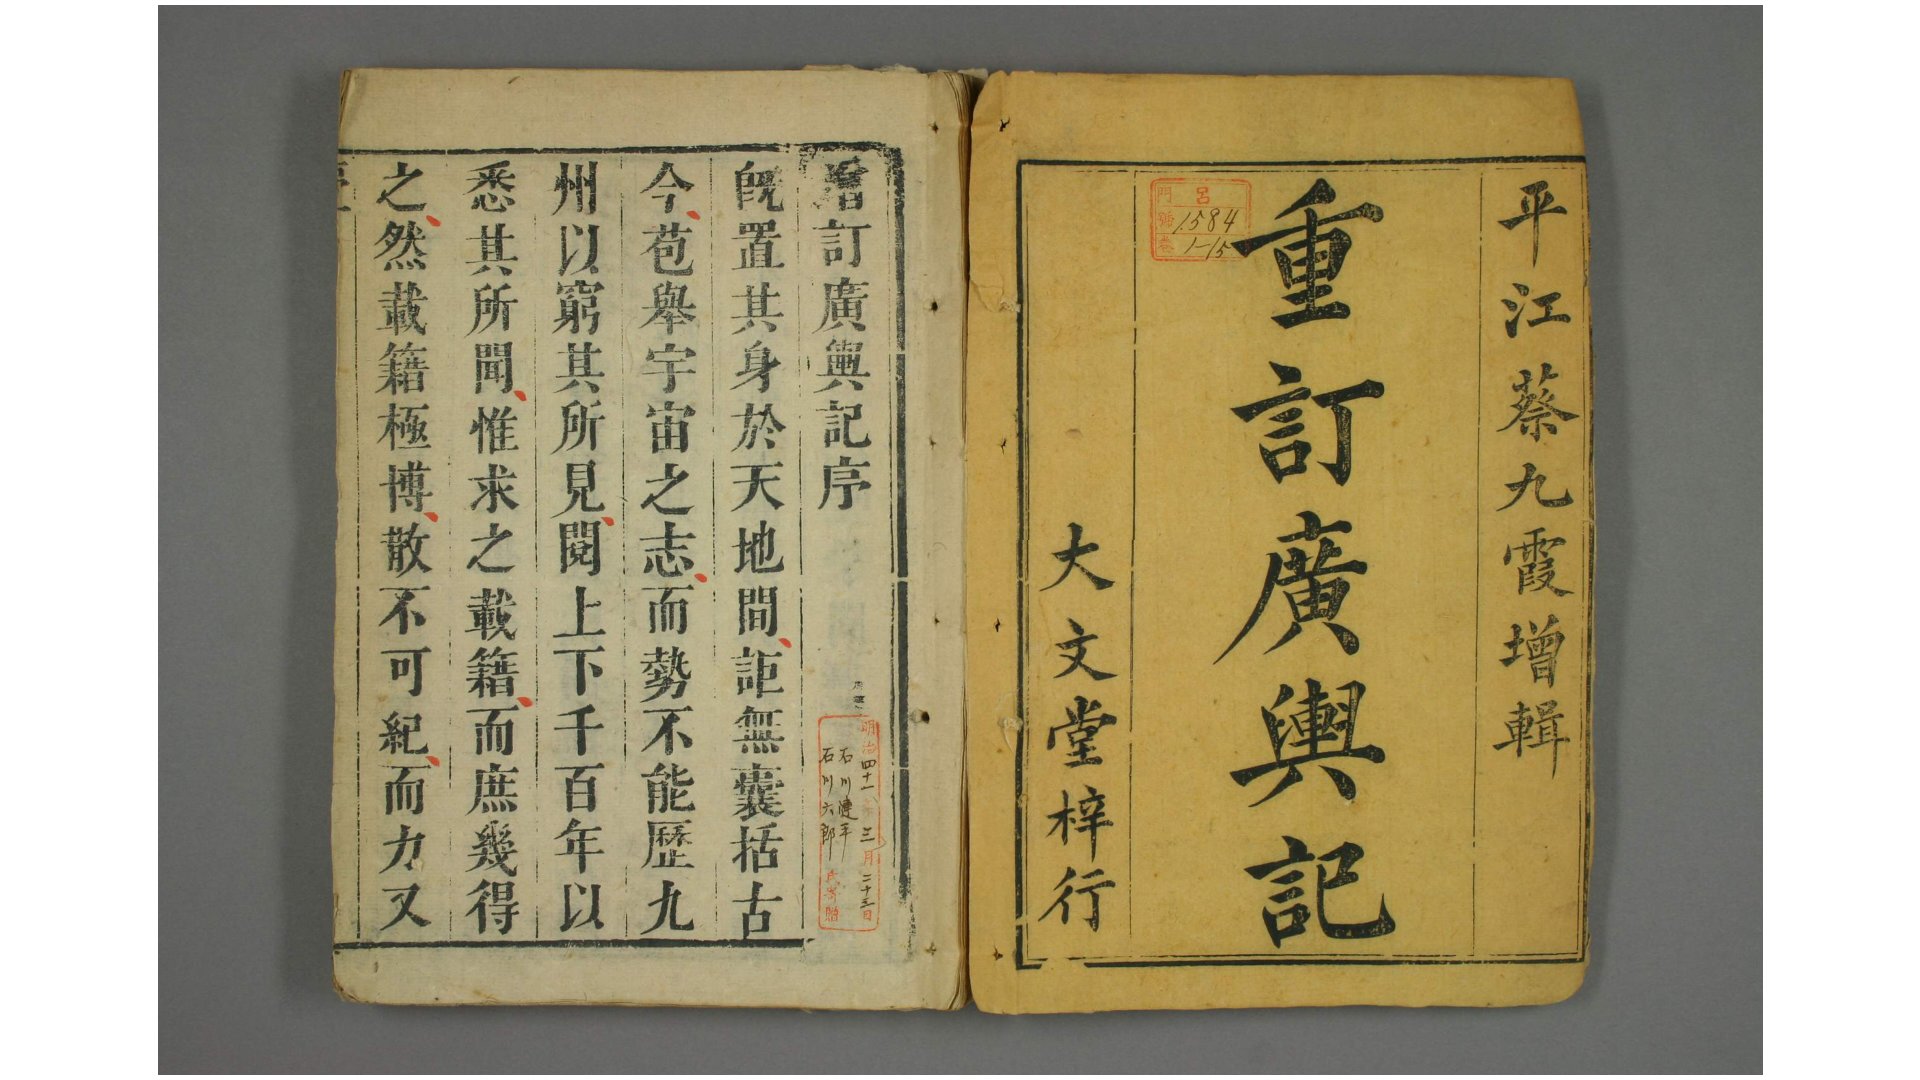 平江蔡九霞增輯
重訂廣輿記
大文堂梓行
呂
門
號 1584
卷 1-15
增訂廣輿記序
既置其身於天地間詎無囊括古
今苞舉宇宙之志而勢不能歷九
州以窮其所見閱上下千百年以
悉其所聞惟求之載籍而庶幾得
之然載籍極博散不可紀而力又
明治四十一年三月二十三日
石川
石川六郎
氏寄贈